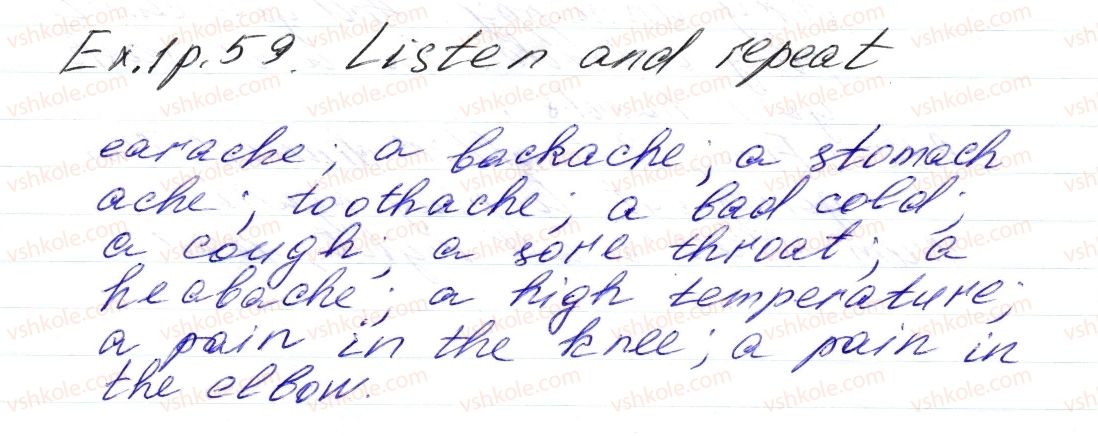 Ex.1 p.59. Listen and repeat
earache; a backache; a stomach
ache; toothache; a bad cold;
a cough; a sore throat; a
heabache; a high temperature;
a pain in the knee; a pain in
the elbow.